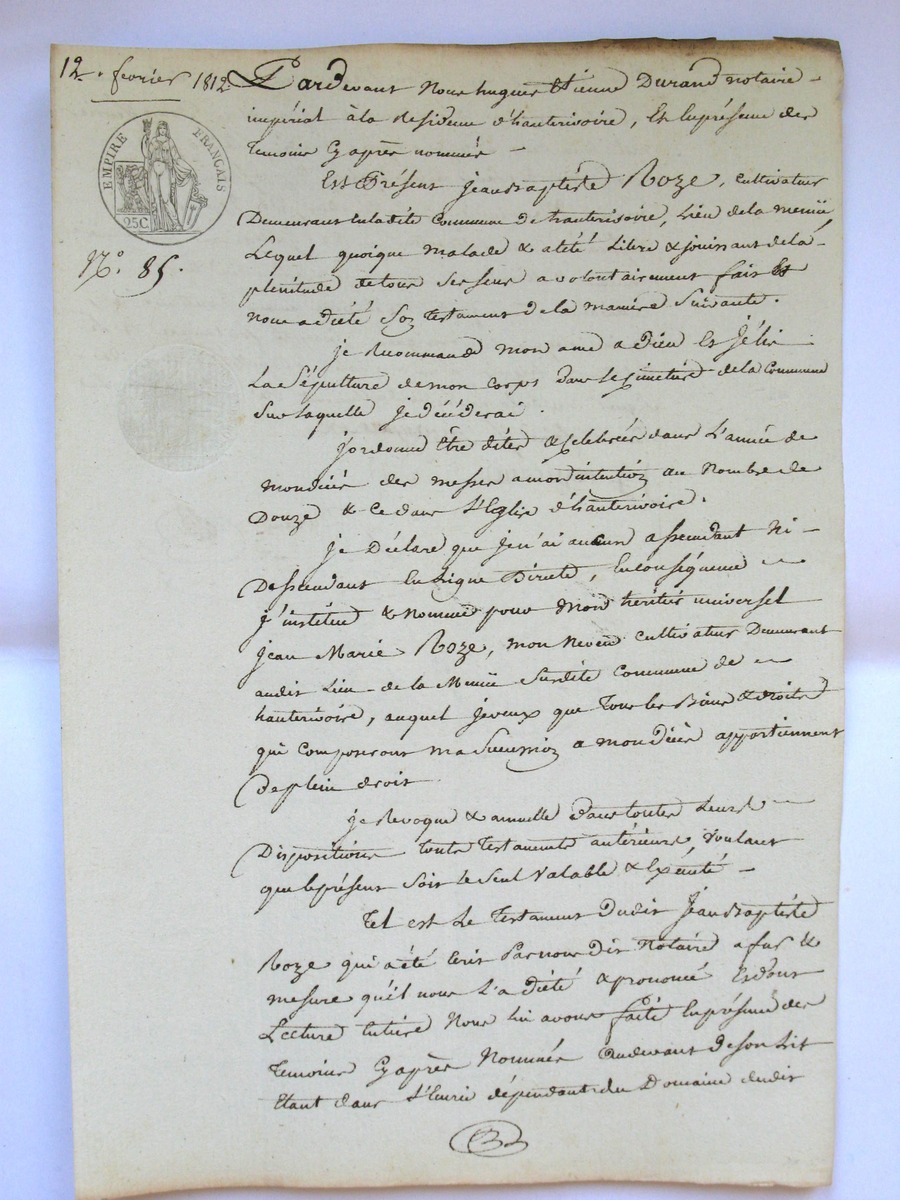 12 fevrier 1812
EMPIRE FRANÇAIS
25C.
N.º 85.
Pardevant Nous hugues Etienne Durand notaire
impérial à la Residence d'hauterivoire, Et En présence des
temoins Cy après nommés
Est Présent jean Baptiste Roze, cultivateur
Demeurant en ladite Commune de hauterivoire, Lieu de la
Lequel quoique malade & alité Libre & jouissant de la
plenitude de tous ses sens a volontairement fait Et
nous a dicté Son testament de la maniere Suivante.
je Recommande mon ame a dieu Et J'élis
La Sépulture de mon corps dans le Cimetière de la Commune
Sur laquelle je décéderai.
J'ordonne être dites & celebrées dans L'année de
mon décès des messes a mon intention au Nombre de
Douze & Ce dans L'Eglise d'hauterivoire.
je Déclare que je n'ai aucun assendant Ni
Dessendant En Ligne Directe, En conséquence
j'institue & Nomme pour mon héritier universel
jean Marie Roze, mon Neveu cultivateur Demeurant
audit Lieu de la Susdite Commune de
hauterivoire, auquel je veux que tous les Biens & droits
qui composeront ma Succession a mon décès appartiennent
De plein droit
je Revoque & annulle dans toutes Leurs
Dispositions touts testaments antérieurs, voulant
que le présent Soit le Seul Valable & Exécuté
Tel est Le Testament Dudit Jean Baptiste
Roze qui a été Ecrit Par nous Dit Notaire a fur &
mesure qu'il nous L'a dicté & prononcé Et dont
Lecture Entière Nous lui avons faite En présence des
temoins Cy après Nommés audevant de son Lit
Etant dans L'Ecurie dépendante du Domaine dudit